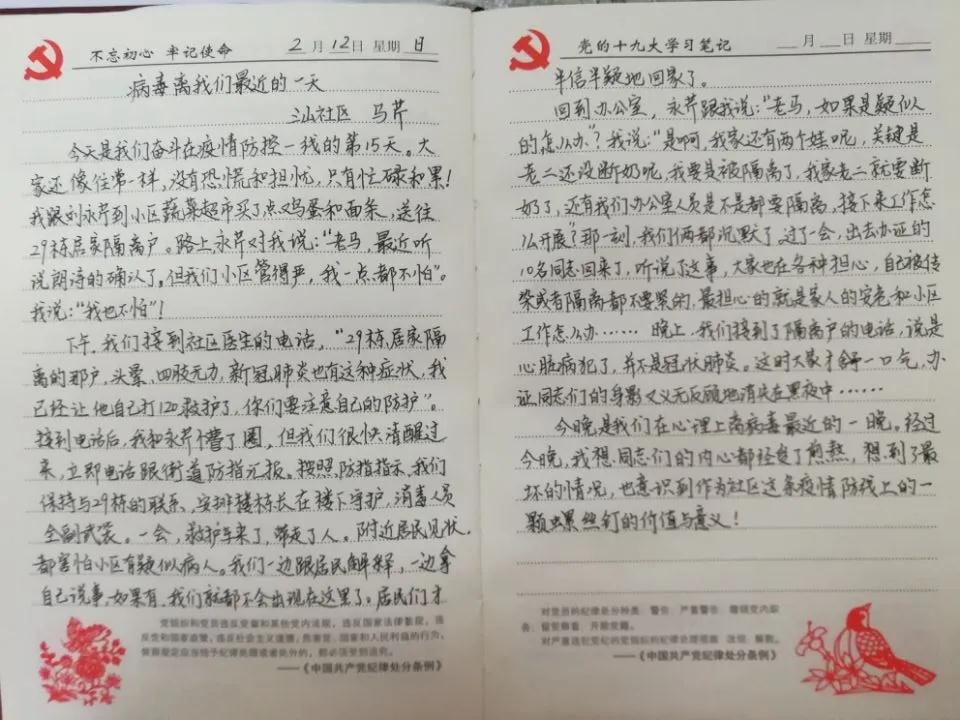 不忘初心 牢记使命 2月12日 星期日
病毒离我们最近的一天
汕社区 马芹
今天是我们奋斗在疫情防控一线的第15天。大
家还像往常一样,没有恐慌和担忧,只有忙碌和累!
我跟刘永芹到小区蔬菜超市买了点鸡蛋和面条,送往
29栋居家隔离户。路上永芹对我说:“老马,最近听
说朗诗的确认了,但我们小区管得严,我一点都不怕”。
我说:“我也不怕”!
下午,我们接到社区医生的电话,“29栋居家隔
离的那户,头晕,四肢无力,新冠肺炎也有这种症状,我
已经让他自己打120救护了,你们要注意自己的防护”。
接到电话后,我和永芹懵了圈,但我们很快清醒过
来,立即电话跟街道防指汇报。按照防指指示,我们
保持与29栋的联系,安排楼栋长在楼下守护,消毒人员
全副武装。一会,救护车来了,带走了人。附近居民见状,
都害怕小区有疑似病人。我们一边跟居民解释,一边拿
自己说事,如果有,我们就都不会出现在这里了。居民们才
党组织和党员违反党章和其他党内法规,违反国家法律法规,违
反党和国家政策,违反社会主义道德,危害党、国家和人民利益的行为,
依照规定应当给予纪律处理或者处分的,都必须受到追究。
——《中国共产党纪律处分条例》
党的十九大学习笔记 月 日 星期
半信半疑地回家了。
回到办公室,永芹跟我说:“老马,如果是疑似
的怎么办”?我说:“是啊,我家还有两个娃呢,关键是
老二还没断奶呢,我要是被隔离了,我家老二就要断
奶了,还有我们办公室人员是不是都要隔离,接下来工作怎
么开展?那一刻,我们俩都沉默了。过了一会,出去办证的
10名同志回来了,听说了这事,大家也在各种担心,自己被传
染或者隔离都不要紧的,最担心的就是家人的安危和小区
工作怎么办…… 晚上,我们接到了隔离户的电话,说是
心脏病犯了,并不是冠状肺炎。这时大家才舒一口气,办
证同志们的身影又义无反顾地消失在黑夜中……
今晚是我们在心理上离病毒最近的一晚。经过
今晚,我想同志们的内心都经受了煎熬,想到了最
坏的情况,也意识到作为社区这条疫情防线上的一
颗螺丝钉的价值与意义!
对党员的纪律处分种类:警告、严重警告、撤销党内职
务、留党察看、开除党籍。
对严重违犯党纪的党组织的纪律处理措施:改组、解散。
——《中国共产党纪律处分条例》